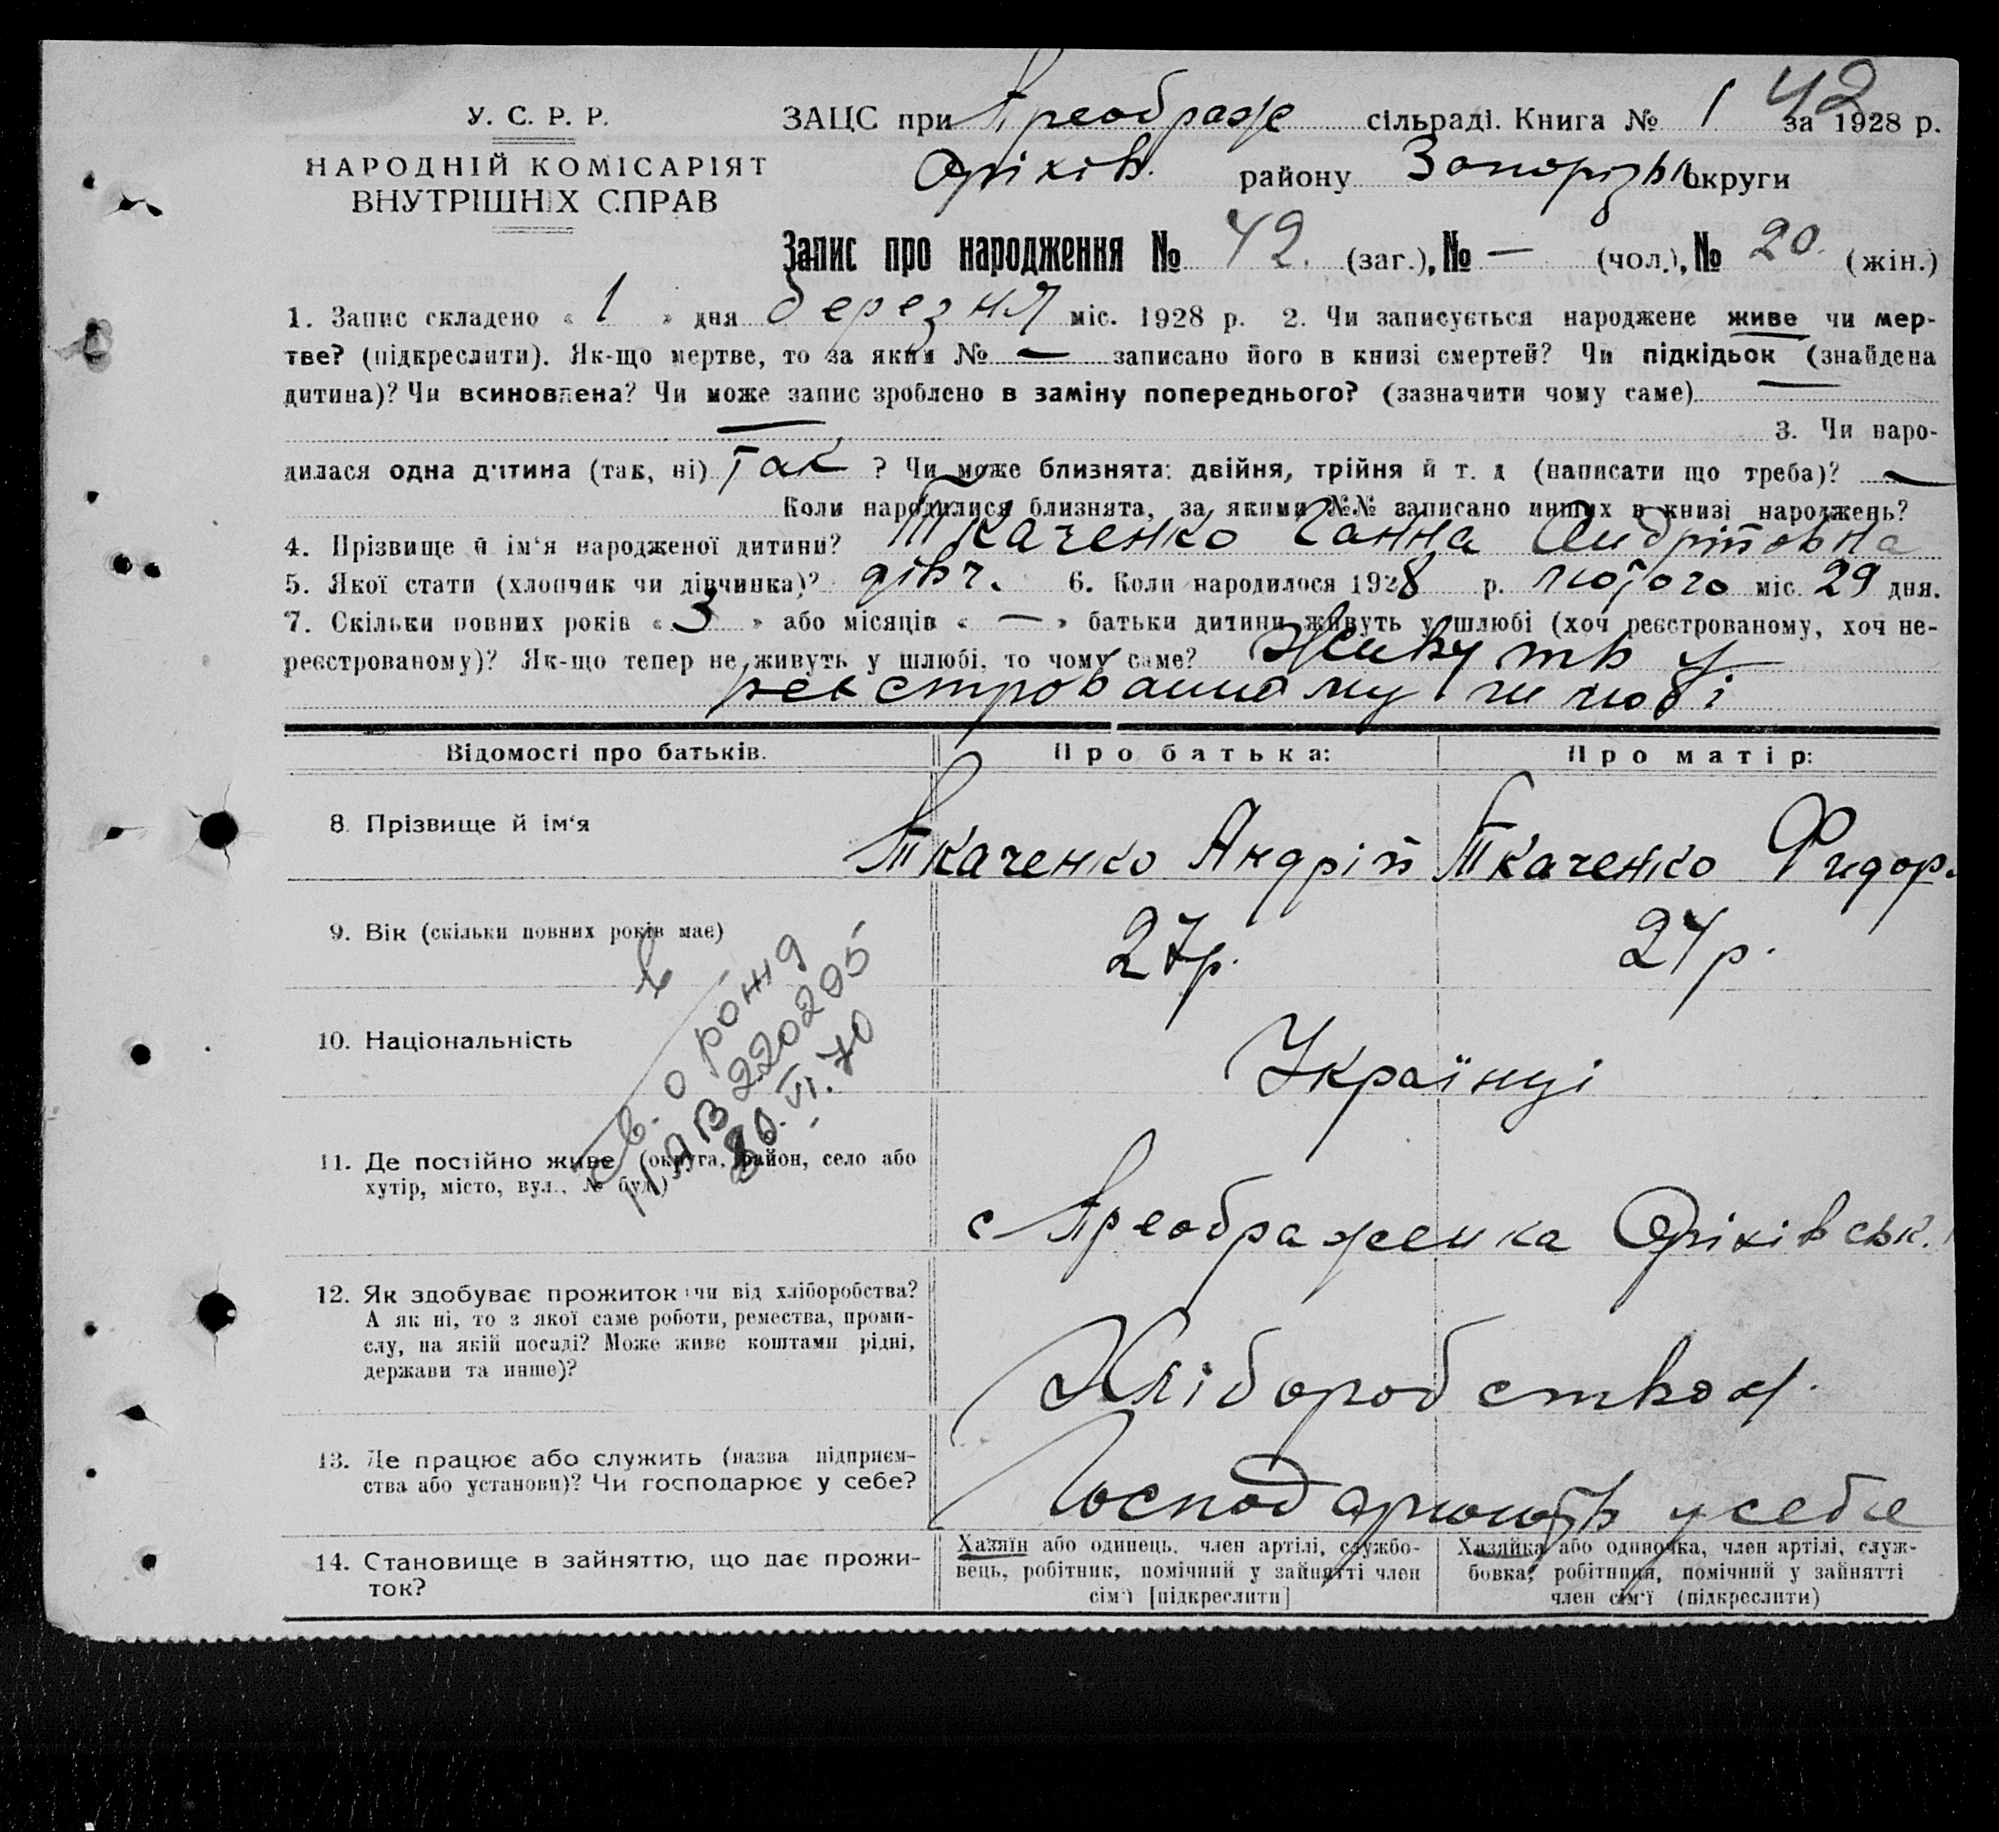 42
У. С. Р. Р.
НАРОДНІЙ КОМІСАРІЯТ
ВНУТРІШНІХ СПРАВ
ЗАЦС при Преображе сільраді. Книга № 1 за 1928 р.
Оріхів. району Запорізьк округи
Запис про народження № 42. (заг.), № — (чол.), № 20. (жін.)
1. Запис складено « 1 » дня березня міс. 1928 р. 2. Чи записується народжене живе чи мер-
тве? (підкреслити). Як-що мертве, то за яким № — записано його в книзі смертей? Чи підкідьок (знайдена
дитина)? Чи всиновлена? Чи може запис зроблено в заміну попереднього? (зазначити чому саме) —
— 3. Чи наро-
дилася одна дитина (так, ні) Так ? Чи може близнята: двійня, трійня й т. д (написати що треба)? —
Коли народилися близнята, за якими №№ записано инших в книзі народжень?
4. Прізвище й ім'я народженої дитини? Ткаченко Ганна Андріївна
5. Якої стати (хлопчик чи дівчинка)? дівч. 6. Коли народилося 1928 р. лютого міс. 29 дня.
7. Скільки повних років « 3 » або місяців « — » батьки дитини живуть у шлюбі (хоч реєстрованому, хоч не-
реєстрованому)? Як-що тепер не живуть у шлюбі, то чому саме? Живуть у
реєстрованному шлюбі
Відомості про батьків. Про батька: Про матір:
8. Прізвище й ім'я Ткаченко Андрій Ткаченко Фидор.
9. Вік (скільки повних років має) 27р. 24р.
10. Національність Українці
11. Де постійно живе (округа, район, село або
хутір, місто, вул., № буд.)
с Преображенка Оріхівськ.
12. Як здобуває прожиток: чи від хліборобства?
А як ні, то з якої саме роботи, ремества, проми-
слу, на якій посаді? Може живе коштами рідні,
держави та инше)?
Хліборобством.
13. Де працює або служить (назва підприєм-
ства або установи)? Чи господарює у себе?
Господарюють у себе
14. Становище в зайняттю, що дає прожи-
ток?
Хазяїн або одинець, член артілі, службо-
вець, робітник, помічний у зайнятті член
сім'ї [підкреслити]
Хазяйка або одиночка, член артілі, служ-
бовка, робітниця, помічний у зайнятті
член сім'ї (підкреслити)
св. о рожд
220205
VI. 70